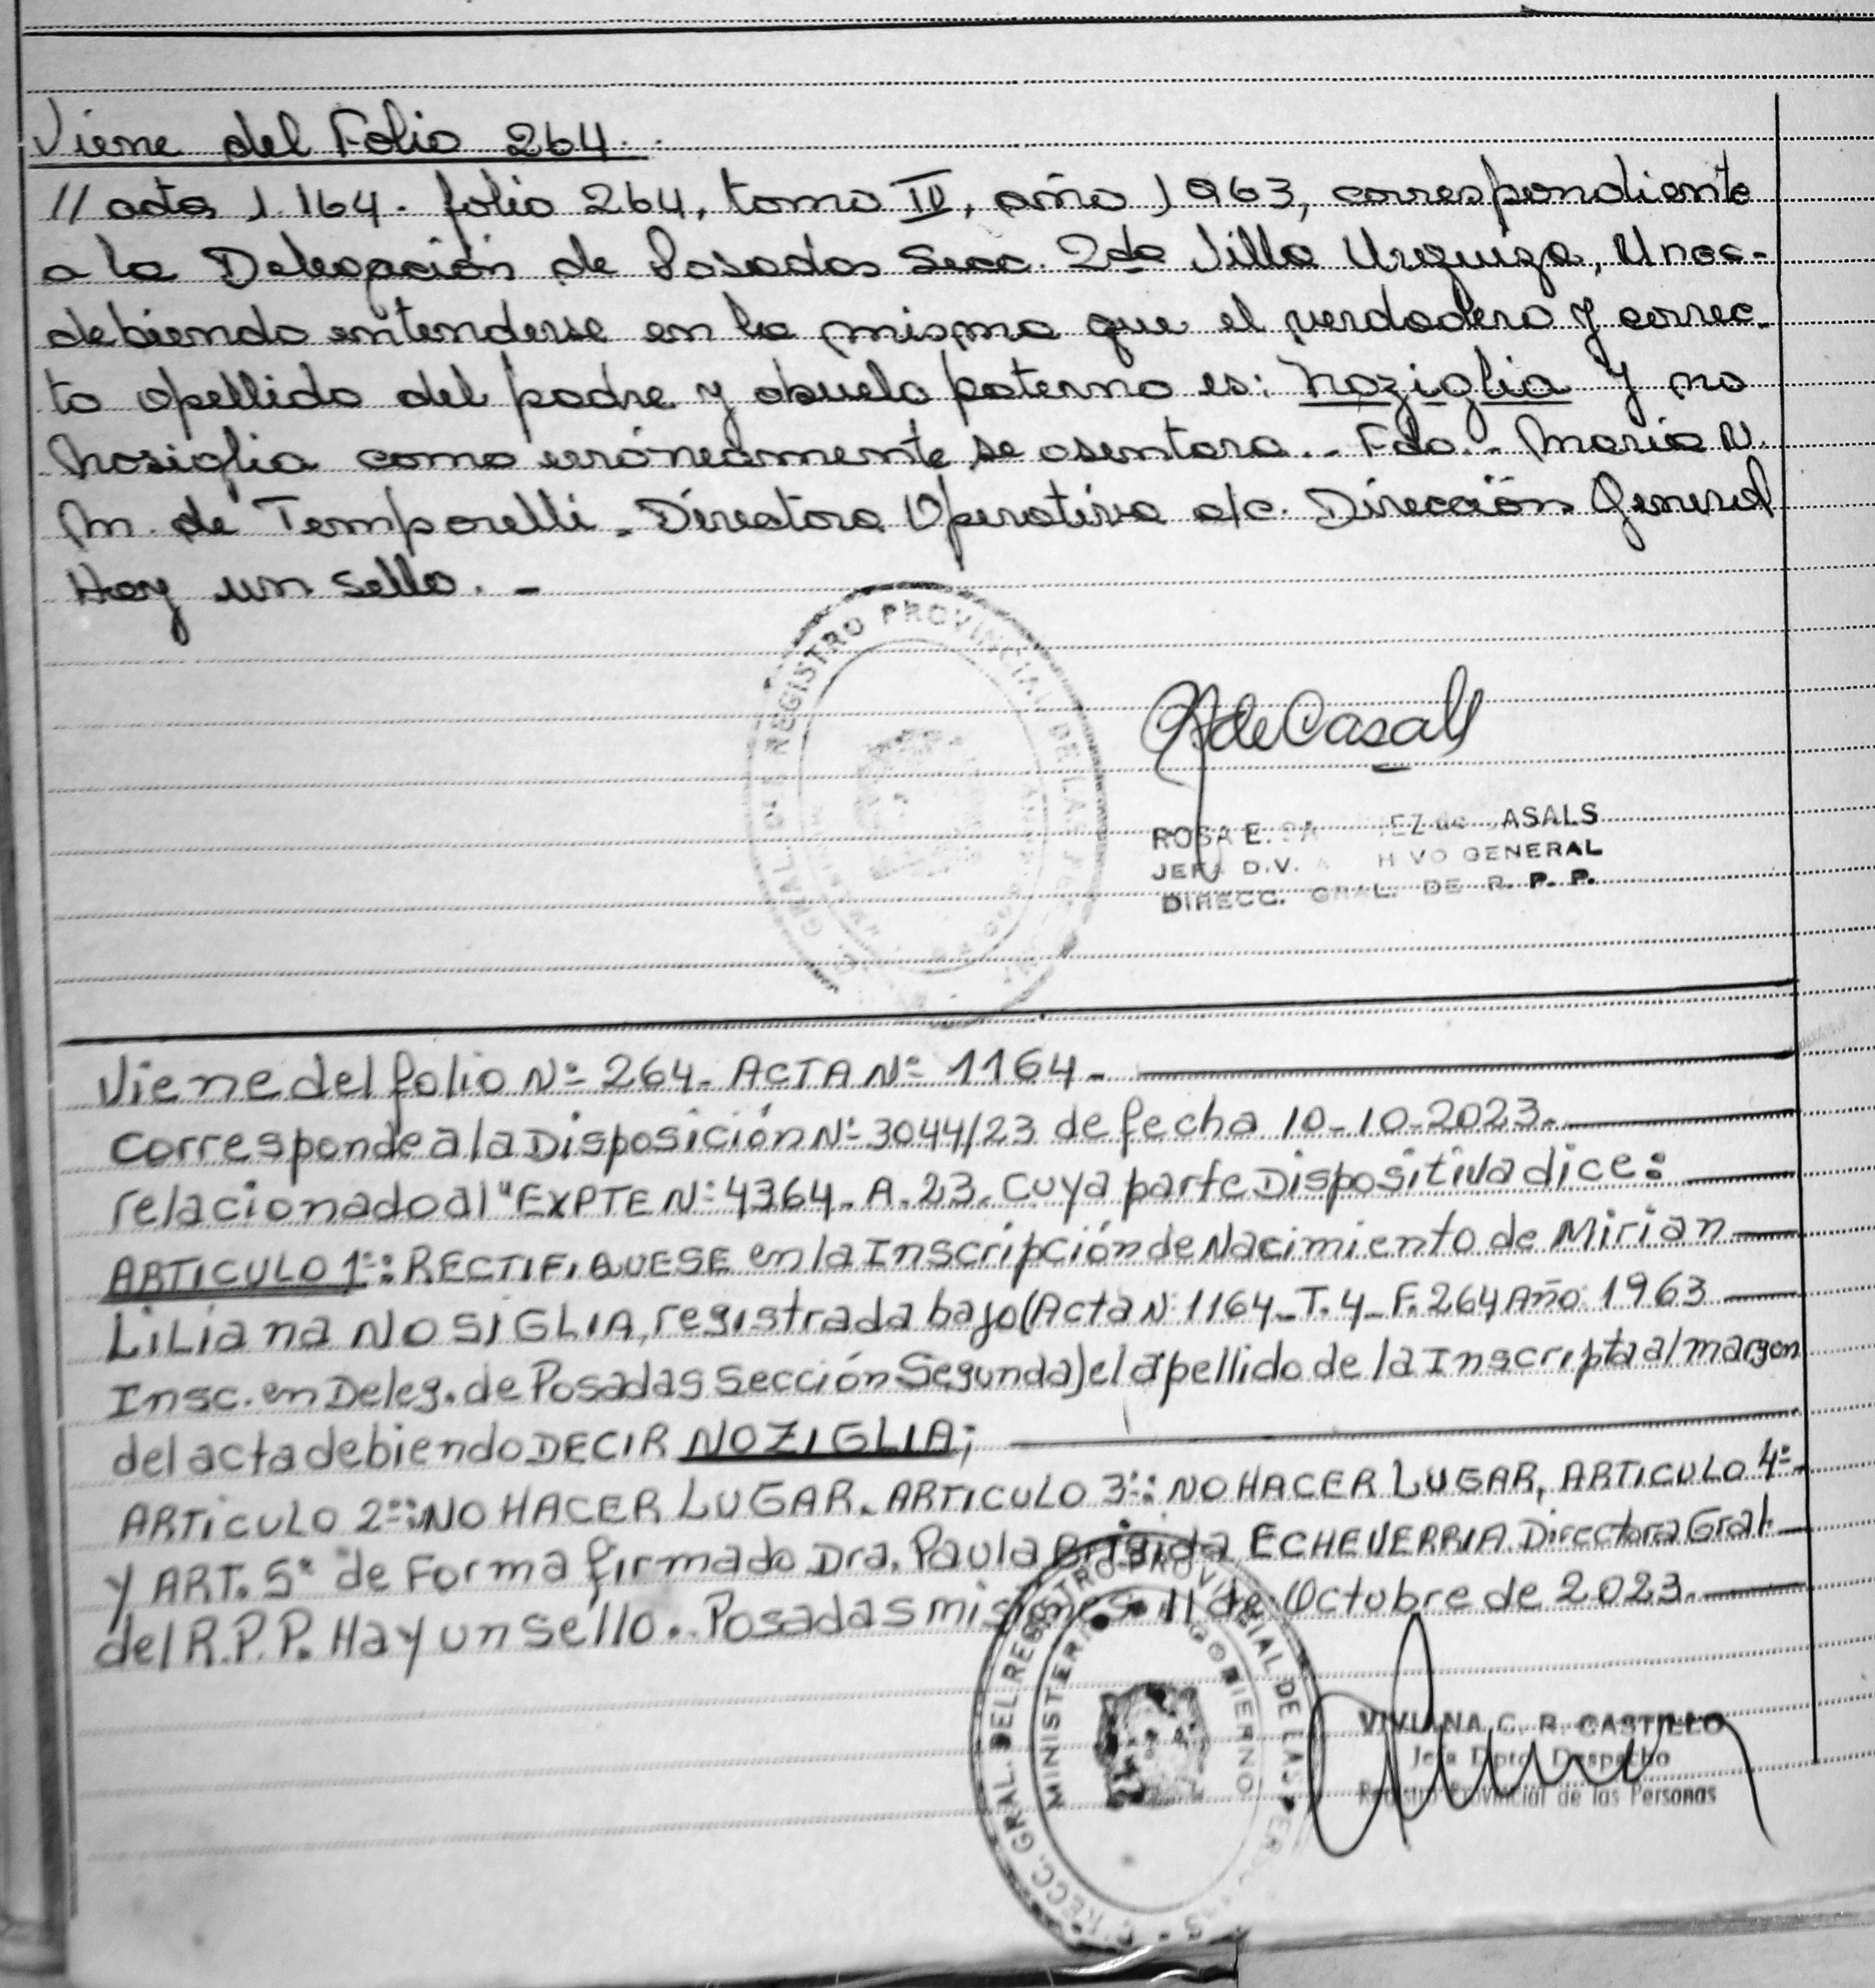 Viene del Folio 264.
// acta 1.164. folio 264, tomo IV, año 1963, correspondiente
a la Delegación de Posadas Secc. 2da Villa Urquiza, Mnes.-
debiendo entenderse en la misma que el verdadero y correc-
to apellido del padre y abuelo paterno es: Noziglia y no
Nosiglia como erróneamente se asentara.- Fdo.- María N.
M. de Temporelli - Directora Operativa a/c. Dirección General
Hay un sello. -
GRAL. DEL REGISTRO PROVINCIAL DE LAS
RdeCasals
ROSA E. EZ de CASALS
JEFA DIV. ARCHIVO GENERAL
DIRECC. GRAL. DE R. P. P.
Viene del folio Nº 264- ACTA Nº 1164-
Corresponde a la Disposición Nº 3044/23 de fecha 10-10-2023.-
relacionado al "EXPTE Nº 4364- A. 23. Cuya parte Dispositiva dice:
ARTICULO 1º: RECTIFIQUESE en la Inscripción de Nacimiento de Mirian
LiLiana NOSIGLIA, registrada bajo (Acta Nº 1164- T. 4- F. 264 Año 1963
Insc. en Deleg. de Posadas Sección Segunda) el apellido de la Inscripta al margen
del acta debiendo DECIR NOZIGLIA;
ARTICULO 2º: NO HACER LUGAR. ARTICULO 3º: NO HACER LUGAR, ARTICULO 4º-
y ART. 5º de Forma firmado Dra. Paula Brigida ECHEVERRIA Directora Gral
del R.P.P. Hay un sello.. Posadas misiones 11 de Octubre de 2023.-
DIRECC. GRAL. DEL REGISTRO PROVINCIAL DE LAS PERSONAS
MINISTERIO GOBIERNO
VIVIANA C. R. CASTILLO
Jefa Dpto. Despacho
Registro Provincial de las Personas